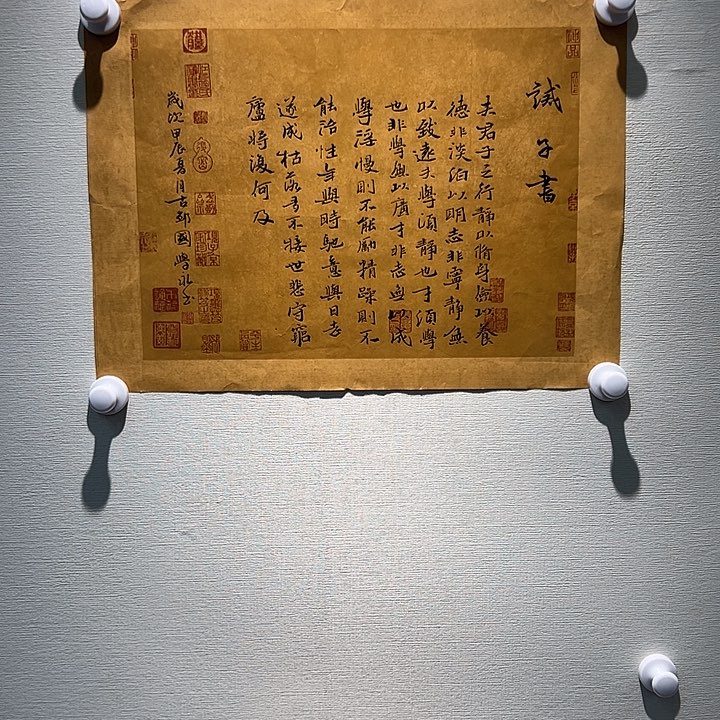 誡子書
夫君子之行靜以脩身儉以養
德非淡泊以明志非寧靜無
以致遠夫學須靜也才須學
也非學無以廣才非志無以成
學浮慢則不能勵精躁則不
能治性年與時馳意與日去
遂成枯落多不接世悲守窮
廬將復何及
歲次甲辰夏月古邳國學書